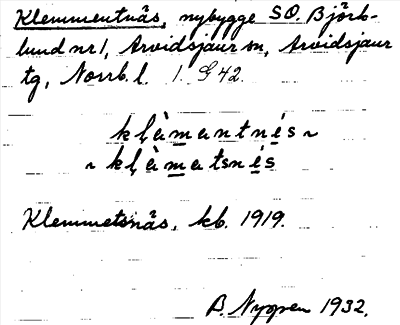 Klemmentnäs, nybygge SO. Björk-
lund nr 1, Arvidsjaur sn, Arvidsjaur
tg, Norrb. l. 1. G 42.
kḷàmantnés ~
~ kḷàmatsnés
Klemmetsnäs, kb. 1919.
B. Nygren 1932.